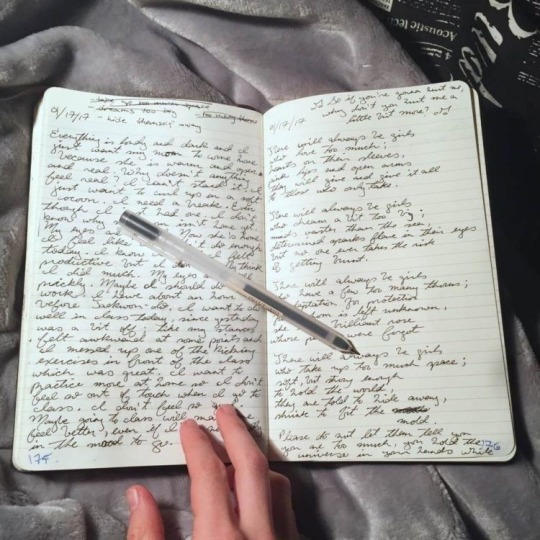 - take up too much space
- dreams too big
- too many thorns
9/17/17 - hide themself away
Everything is foggy and dark and I
just want my mom to come home
because she is warm and open
and real. Why doesn't anything
feel real? I can't stand it. I
just want to curl up in a soft
cocoon. I need a break even
though I just had one. I don't
know why
My eyes
I feel like I didn't do enough
today. I know I felt
productive but I don't really think
I did much. My eyes feel
prickly. Maybe I should do some
work. I have about an hour
before Taekwon-do. I want to do
well in class today, since yesterday
was a bit off; like my stances
felt awkward at some points and
I messed up one of the kicking
exercises in front of the class
which was great. I want to
practice more at home so I don't
feel so out of touch when I go to
class. I don't feel so good.
Maybe going to class will make me
feel better, even if I
in the mood to go.
175.
So if you're gonna hurt me,
why don't you hurt me a
little bit more?
9/17/17
There will always be girls
who love too much;
hearts on their sleeves,
and open arms
they will give and give it all
to those who only take.
There will always be girls
who dream a bit too big;
minds vaster than the sea,
determined sparks flare in their eyes
but no one ever takes the risk
of getting burnt.
There will always be girls
who have a few too many thorns;
adaptation for protection
bloom is left unknown,
brilliant rose
where forget
There will always be girls
who take up too much space;
soft, but strong enough
to hold the world
they are told to hide away,
shrink to fit the
mold.
Please do not let them tell you
you are too much, you hold the
universe in your hands while
176
Acoustic